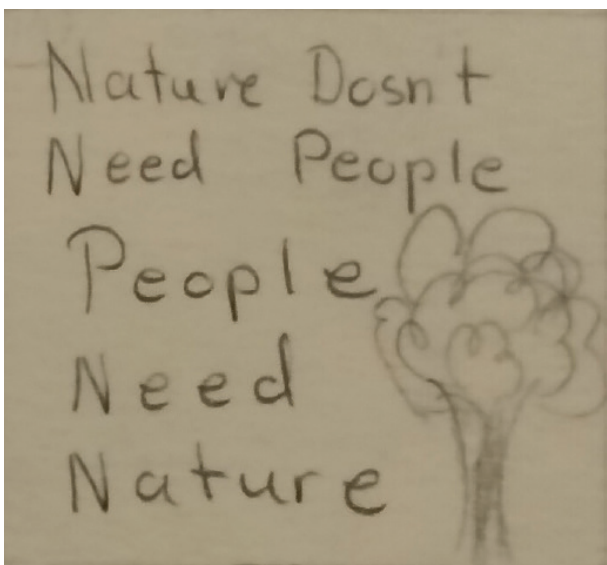 Nature Dosnt
Need People
People
Need
Nature